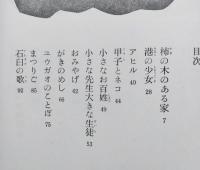 目次
柿の木のある家 7
港の少女 28
アヒル 40
甲子とネコ 44
小さなお百姓 49
小さな先生大きな生徒 53
おみやげ 62
がきのめし 66
ユウガオのことば 75
まつりご 85
石臼の歌 92